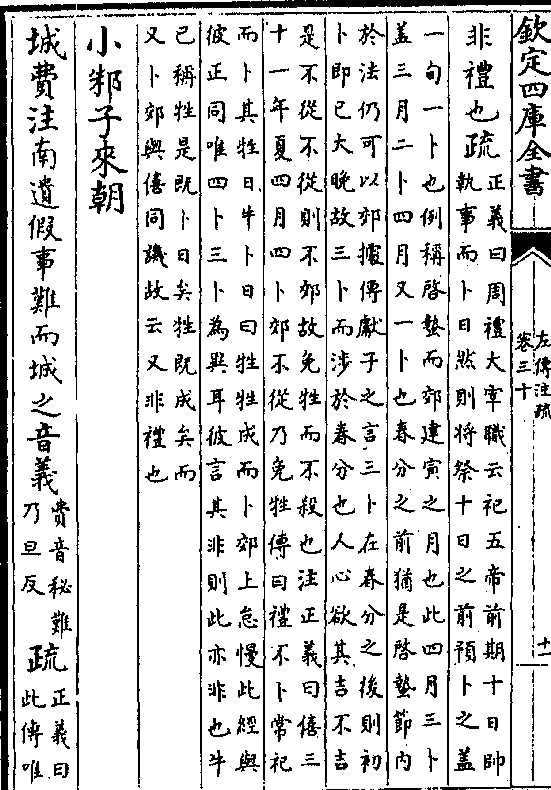 欽定四庫全書
左傳注疏
卷三十
十一
非禮也疏
正義曰周禮大宰職云祀五帝前期十日帥
執事而卜日然則將祭十日之前預卜之蓋
一旬一卜也例稱啓蟄而郊建寅之月也此四月三卜
蓋三月二卜四月又一卜也春分之前猶是啓蟄節内
於法仍可以郊據傳獻子之言三卜在春分之後則初
卜即已大晚故三卜而涉於春分也人心欲其吉不吉
是不從不從則不郊故免牲而不殺也注正義曰僖三
十一年夏四月四卜郊不從乃免牲傳曰禮不卜常祀
而卜其牲日牛卜日曰牲牲成而卜郊上怠慢此經與
彼正同唯四卜三卜為異耳彼言其非則此亦非也牛
已稱牲是既卜日矣牲既成矣而
又卜郊與僖同譏故云又非禮也
小邾子來朝
城費注南遺假事難而城之音義
費音秘難
乃旦反
疏
正義曰
此傳唯